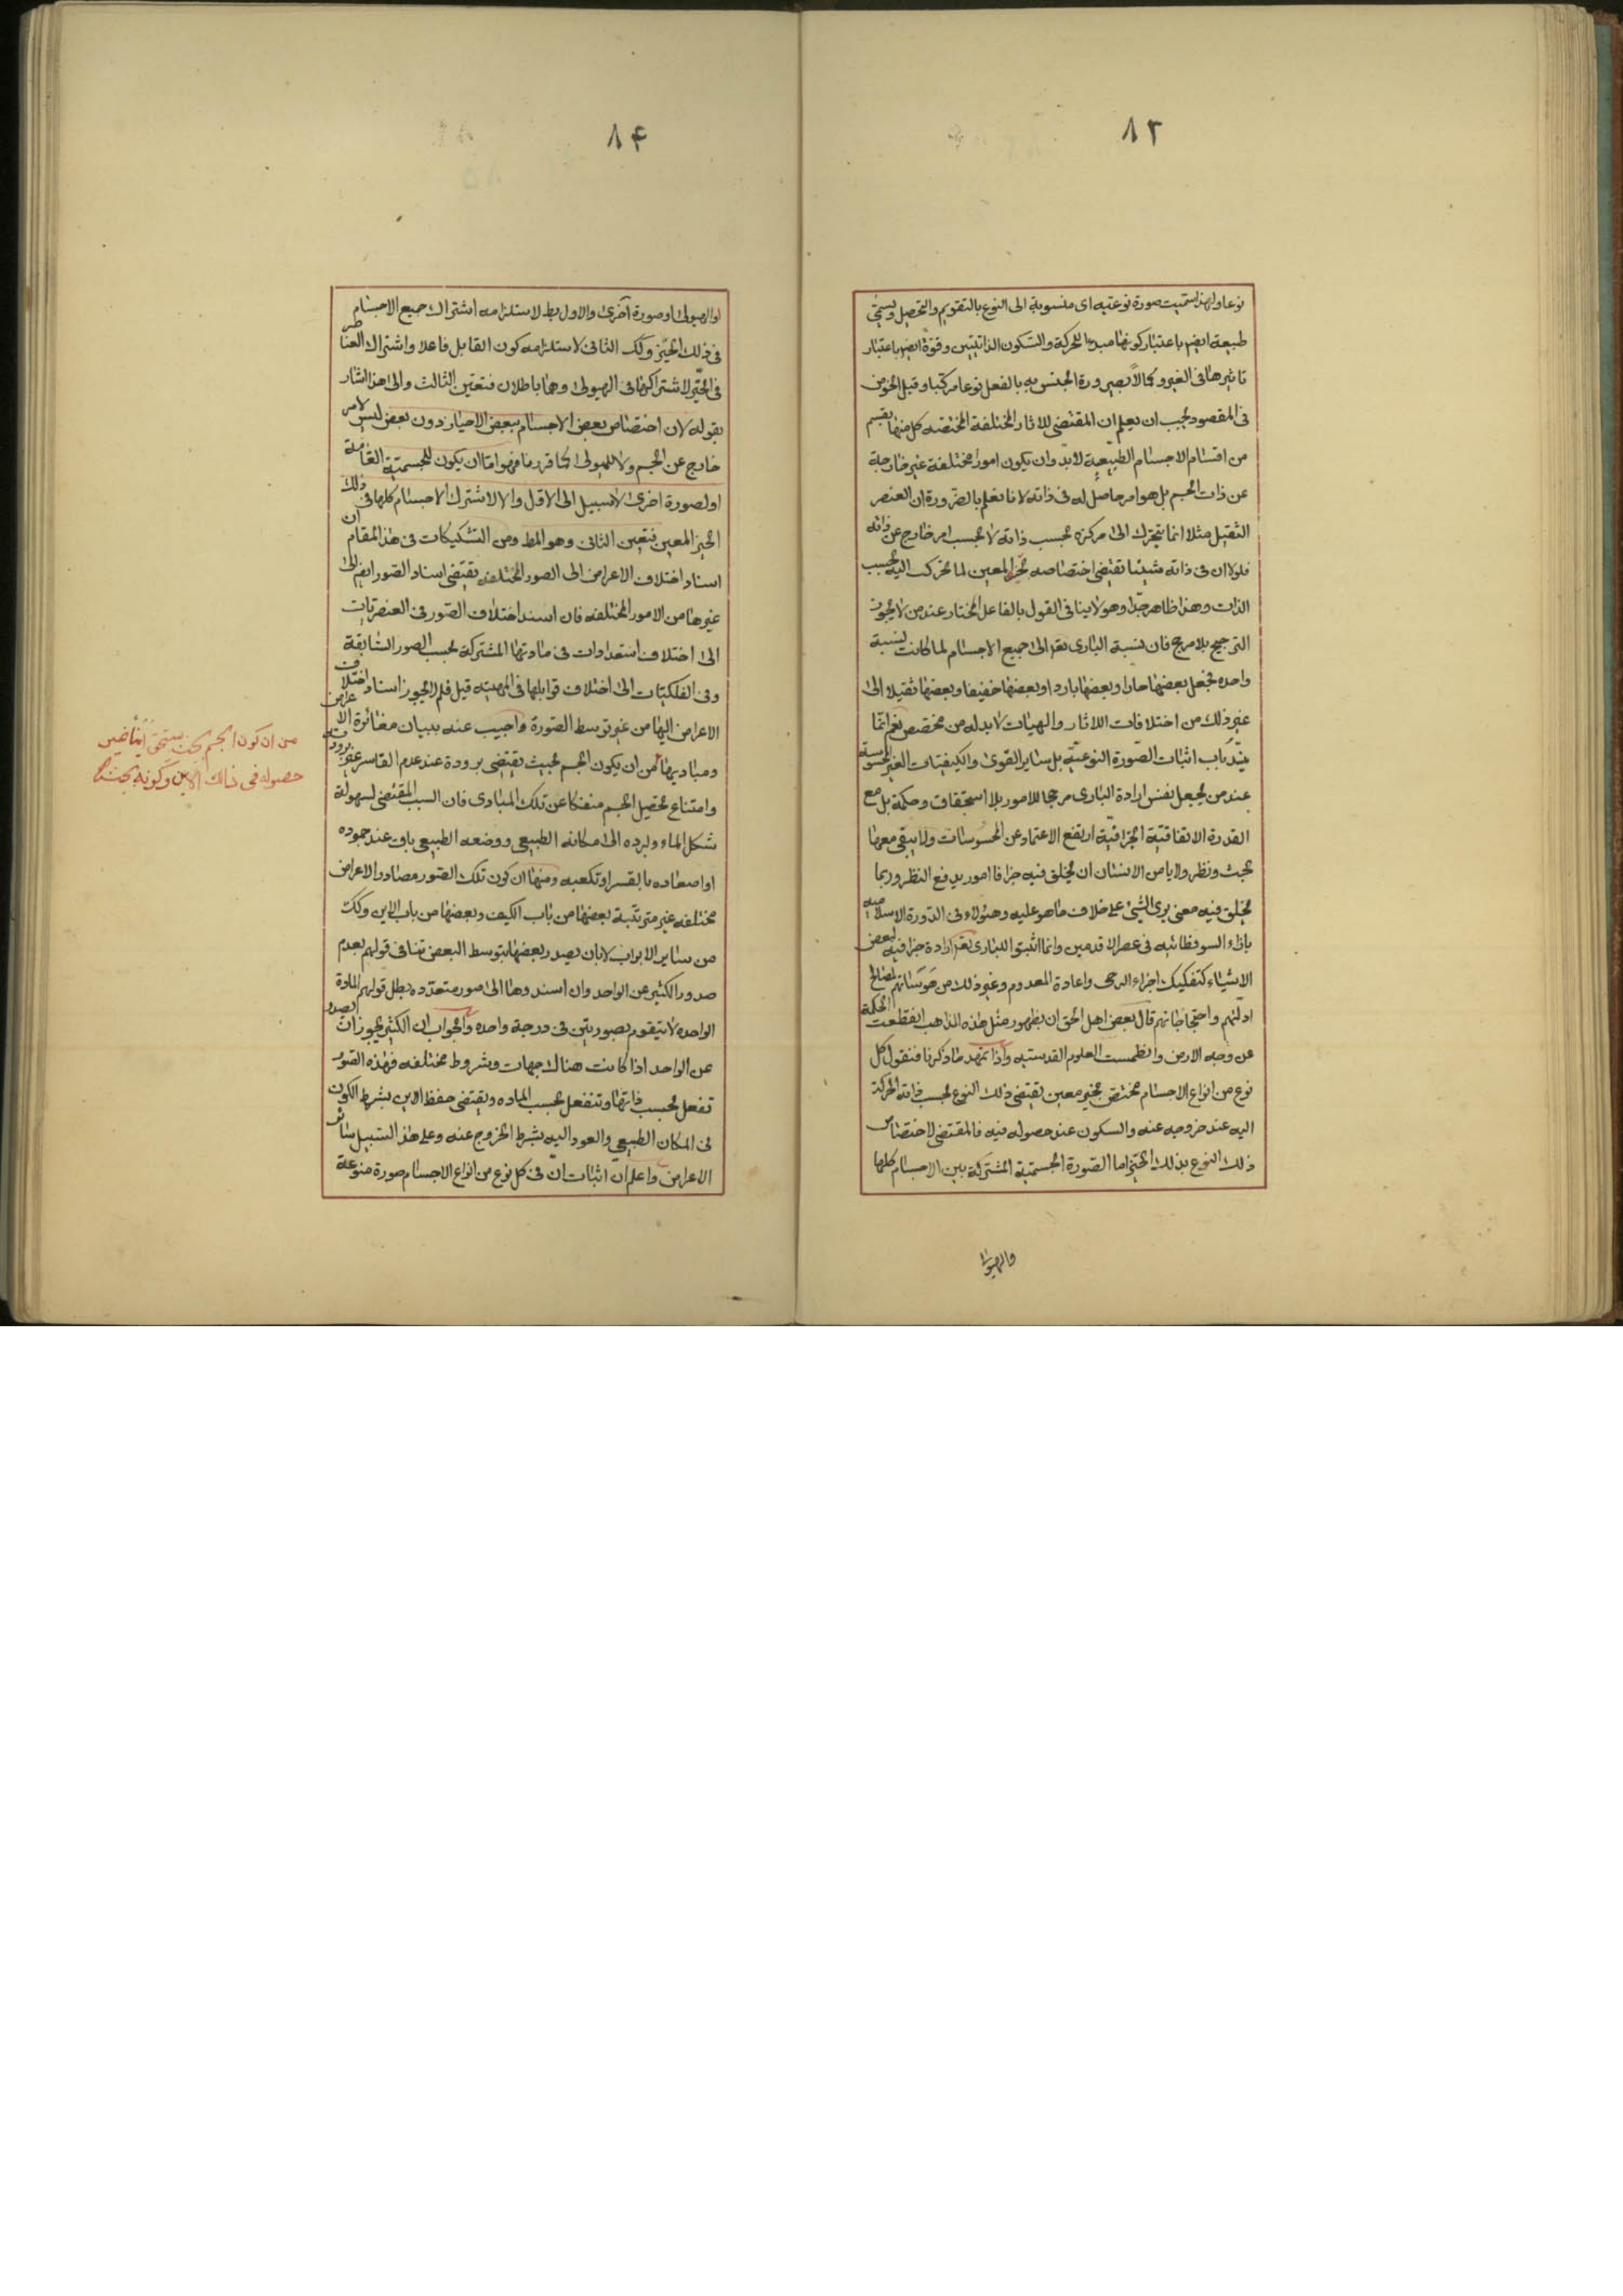 ٨٣
نوعا ولهذا سميت صورة نوعية اى منسوبة الى النوع بالتقويم والتحصيل ويسمى
طبيعة ايضا باعتبار كونها مبدء للحركة والسكون الذاتيين وقوة ايضا باعتبار
تاثيرها فى الغير وكمالا بصيرورة الجنس به بالفعل نوعا مركبا وقبل الخوض
فى المقصود يجب ان يعلم ان المقتضى للاثار المختلفة المختصة كل منها بقسم
من اقسام الاجسام الطبيعية لابد وان يكون امورا مختلفة غير خارجة
عن ذات الجسم بل هو امر حاصل له فى ذاته لانا نعلم بالضرورة ان العنصر
الثقيل مثلا انما يتحرك الى مركزه بحسب ذاته لا بحسب امر خارج عن ذاته
فلولا ان فى ذاته شيئا تقتضى اختصاصه بحيز المعين لما تحرك اليه بحسب
الذات وهذا ظاهر جدا وهو لا ينافى القول بالفاعل المختار عند من لا يجوز
الترجيح بلا مرجح فان نسبة البارى تعر الى جميع الاجسام لما كانت نسبة
واحده فجعل بعضها حارا وبعضها باردا وبعضها خفيفا وبعضها ثقيلا الى
غير ذلك من اختلافات اللاثار والهيات لابد له من مخصص نعم انما
ينسد باب اثبات الصورة النوعية بل ساير القوى والكيفيات الغير المحسوسة
عند من يجعل نفس ارادة البارى مرجحا للامور بلا استحقاق وحكمة بل مع
القدرة الاتفاقية الجزافية ارتفع الاعتماد عن المحسوسات ولا يبقى معها
بحث ونظر ولا يامن الانسان ان يخلق فيه جزافا امور يدفع النظر وربما
يخلق فيه معنى يرى الشئ على خلاف ما هو عليه وهؤلاء فى الدورة الاسلامية
بازاء السوفظائيه فى عصر الاقدمين وانما اثبتوا للبارى تعر ارادة جزافية لبعض
الاشياء كتفكيك اجزاء الرحى واعادة المعدوم وغير ذلك من هوساتهم لصالح
ادلتهم واحتجاجاتهم قال بعض اهل الحق ان بظهور مثل هذه المذاهب انقطعت الحكمة
عن وجه الارض وانطمست العلوم القدسيه واذا تمهد ما ذكرنا فنقول كل
نوع من انواع الاجسام مختص بحيز معين تقتضى ذلك النوع بحسب ذاته الحركة
اليه عند خروجه عنه والسكون عند حصوله فيه فالمقتضى لاختصاص
ذلك النوع بذلك الحيز اما الصورة الجسمية المشتركة بين الاجسام كلها
والهيولى
٨۴
او الهيولى او صورة اخرى والاول بط لاستلزامه اشتراك جميع الاجسام
فى ذلك الحيز وكك الثانى لاستلزامه كون القابل فاعلا واشتراك العناصر
فى الحيز لاشتراكها فى الهيولى وهما باطلان فتعين الثالث والى هذا اشار
بقوله لان اختصاص بعض الاجسام ببعض الاحياز دون بعض ليس لامر
خارج عن الجسم ولا للهيولى كما قررنا فهو اما ان يكون للجسمية العامة
او لصورة اخرى لا سبيل الى الاول والا لاشترك الاجسام كلها فى ذلك
الحيز المعين فتعين الثانى وهو المط ومن التشكيكات فى هذا المقام ان
اسناد اختلاف الاعراض الى الصور المختلفه تقتضى اسناد الصور ايضا الى
غيرها من الامور المختلفه فان اسند اختلاف الصور فى العنصريات
الى اختلاف استعدادات فى مادتها المشتركة بحسب الصور السابقة
وفى الفلكيات الى اختلاف قوابلها فى المهيته قيل فلم لا يجوز اسناد اختلاف
الاعراض اليها من غير توسط الصورة واجيب عنه ببيان مغائرة الاعراض
ومباديها من ان يكون الجسم بحيث تقتضى برودة عند عدم القاسر غير برودته
وامتناع تحصيل الجسم منفكا عن تلك المبادى فان السبب المقتضى لسهولة
شكل الماء ولرده الى مكانه الطبيعى ووضعه الطبيعى باق عند جموده
او اصعاده بالقسر او تكعبه ومنها ان كون تلك الصور مصادر الاعراض
مختلفه غير مترتبة بعضها من باب الكيف وبعضها من باب الاين وكك
من ساير الابواب لا بان يصدر بعضها بتوسط البعض تنافى قولهم بعدم
صدور الكثير عن الواحد وان اسندوها الى صور متعدده بطل قولهم المادة
الواحده لا يتقوم بصورتين فى درجة واحده والجواب ان الكثير يجوز ان الصدر
عن الواحد اذا كانت هناك جهات وشروط مختلفه فهذه الصور
تفعل بحسب ذاتها وتنفعل بحسب الماده وتقتضى حفظ الاين بشرط الكون
فى المكان الطبيعى والعود اليه بشرط الخروج عنه وعلى هذا السبيل سائر
الاعراض واعلم ان اثبات ان فى كل نوع من انواع الاجسام صورة منوعة
من ان كون الجسم بحيث يستحق اينا غير
حصوله فى ذالك الاين وكونه بحيث